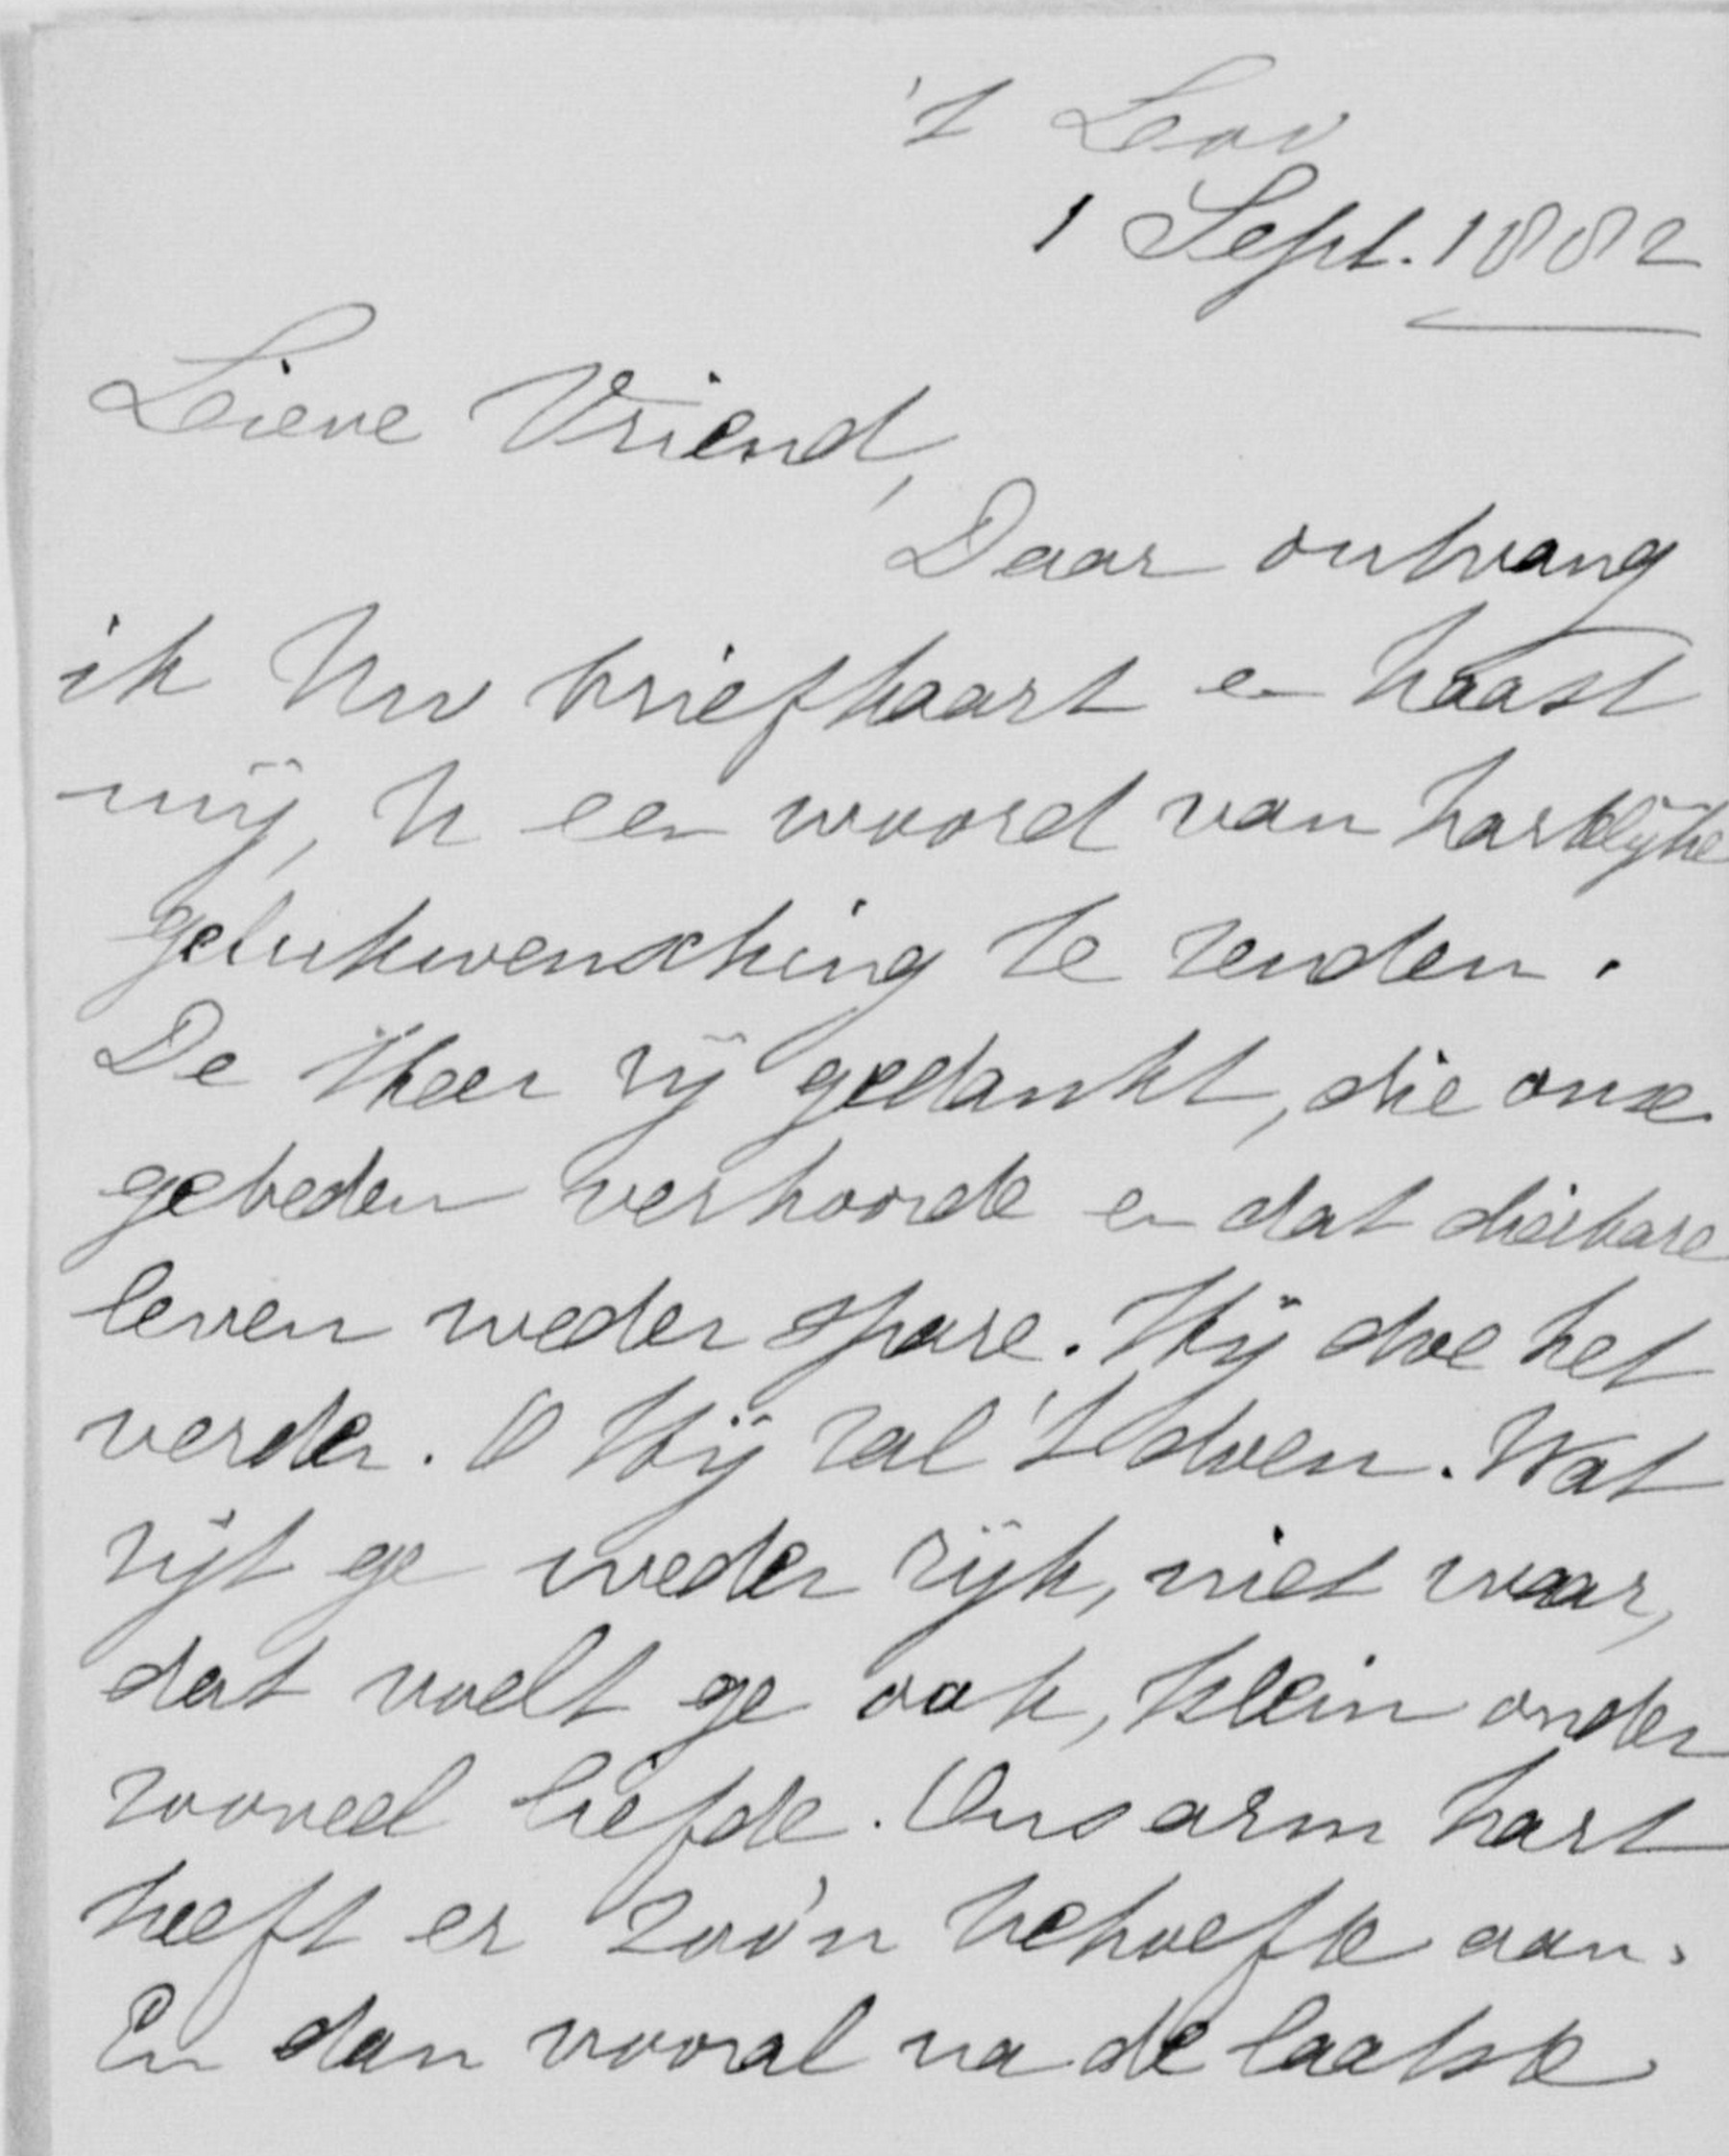 't Loo
1 Sept. 1882
Lieve Vriend,
Daar ontvang
ik Uw briefkaart en haast
mij, U een woord van hartelijke
gelukwensching te zenden.
De Heer zij gedankt, die onze
gebeden verhoorde en dat dierbare
leven weder spare. Hij doe het
verder. O Hij zal 't doen. Wat
zijt ge weder rijk, niet waar,
dat voelt ge ook, klein onder
zooveel liefde. Ons arm hart
heeft er zoo'n behoefte aan.
En dan vooral na de laatste